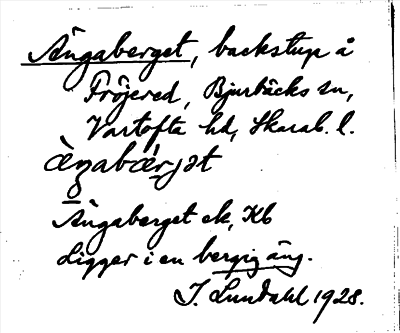 Ängaberget, backstup å
Fröjered, Bjurbäcks sn,
Vartofta hd, Skarab. l.
Ängaberget ek, Kb
Ligger i en bergig äng.
I. Lundahl 1928.